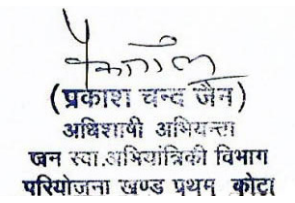 (प्रकाश चन्द जैन)
अधिशाषी अभियन्ता
जन स्वा.अभियांत्रिकी विभाग
परियोजना खण्ड प्रथम् कोटा